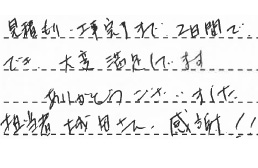 見積もり、工事完了まで 2日間で
でき、大変満足しています
ありがとうございました
担当者 坂田さん、感謝!!